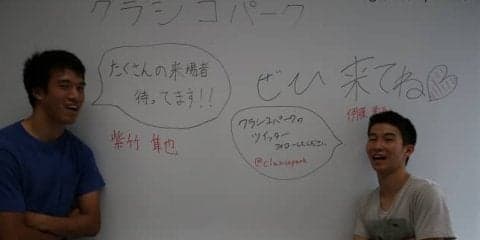 クラシコパーク
たくさんの来場者
待ってます!!
ぜひ 来てね
クラシコパークの
ツイッター
フォローしてください。
紫竹